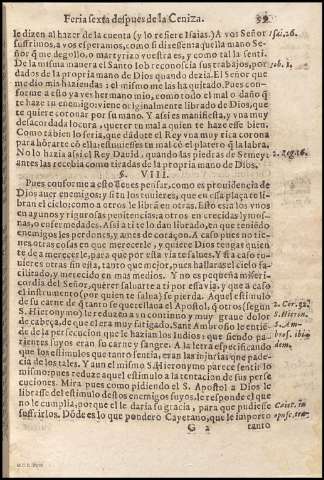 Feria sexta despues de la Ceniza. 52
le dizen al hazer de la cuenta (y lo refiere Isaias.) A vos Señor Isai. 26.
sufrimos, a vos esperamos, como si dixessen: aquella mano Se-
ñor q̃ me degollo, o martyrizo vuestra es, y como tal la senti.
De la misma manera el Santo Iob: reconocia sus trabajos, por Iob. 1.
dados de la propria mano de Dios quando dezia. El Señor que
me dio mis haziendas: el mismo me las ha quitado. Pues con-
forme a esto ya ves hermano mio, como todo el mal o daño q̃
te haze tu enemigo: viene originalmente librado de Dios, que
te quiere coronar por su mano. Y assi es manifiesta, y vna muy
desacordada locura, querer tu mal a quien te haze esse bien.
Como tãbien lo seria, que dãdote el Rey vna muy rica corona
para hõrarte cõ ella: estuuiesses tu mal cõ el platero q̃ la labra.
No lo hazia assi el Rey Dauid, quando las piedras de Semey: 2. Reg. 16.
antes las recebia como tiradas de la propria mano de Dios.
§. VIII.
Pues conforme a esto deues pensar, como es prouidencia de
Dios auer enemigos: y si tu los tuuieres, que en essa plaça te li-
bran el cielo: como a otros le libra en otras. Esto es: a los vnos
en ayunos y rigurosas penitencias: a otros en crecidas lymos-
nas, o enfermedades. Assi a ti te lo dan librado, en que teniẽdo
enemigos les perdones, y ames de coraçon. A caso pues no tie-
nes otras cosas en que merecerle, y quiere Dios tengas quien
te de a merecerle, para que por esta via te salues. Y si a caso tu-
uieres otras sin essa, tanto que mejor, pues hallaras el cielo fa-
cilitado, y merecido en mas medios. Y no es pequeña miseri-
cordia del Señor, querer saluarte a ti por essa via, y que a caso
el instrumẽto (por quien te salua) se pierda. Aquel estimulo
de su carne de q̃ tanto se querellaua el Apostol, q̃ otros (segun 2. Cor. 12.
S. Hieronymo) le reduzẽ a vn continuo y muy graue dolor S. Hieron.
de cabeça, de que el era muy fatigado. Sant Ambrosio le entiẽ- S. Am-
de de la persecucion que le hazian los Iudios: que siendo pa- bros. ibi-
rientes suyos eran su carne y sangre. A la letra especificando dem,
que los estimulos que tanto sentia, eran las injurias que pade-
cia de los tales. Y aun el mismo S. Hieronymo parece sentir lo
mismo: pues reduze aquel estimulo a la tentacion de sus perse-
cuciones. Mira pues como pidiendo el S. Apostol a Dios le
librasse del estimulo destos enemigos suyos, le responde el que
no le cumplia, porque el le daria su gracia, para que pudiesse Caiet. in
sufrirlos. Dõde es lo que pondero Cayetano, que le importo
G 2 tanto